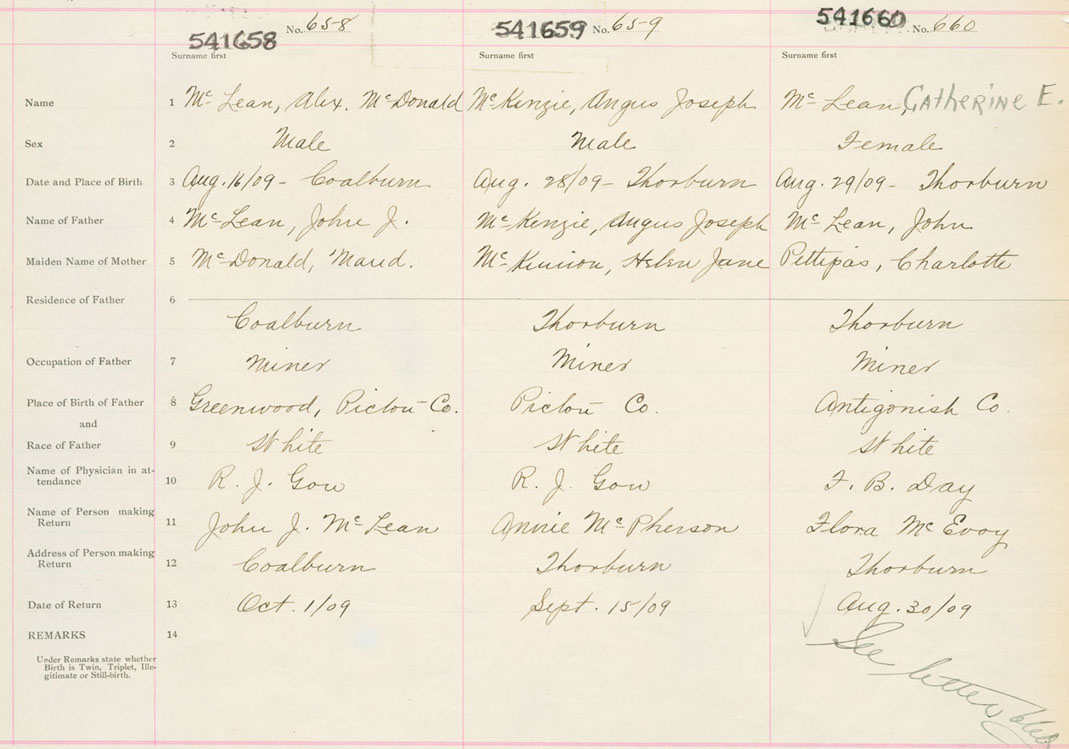 541658 No. 658 541659 No. 659 541660 No. 660
Surname first Surname first Surname first
Name 1 Mc Lean, Alex. McDonald McKenzie, Angus Joseph Mc Lean, Catherine E.
Sex 2 Male Male Female
Date and Place of Birth 3 Aug. 16/09 - Coalburn Aug. 28/09 - Thorburn Aug. 29/09 - Thorburn
Name of Father 4 McLean, John J. McKenzie, Angus Joseph Mc Lean, John
Maiden Name of Mother 5 McDonald, Maud. McKinnon, Helen Jane Pettipas, Charlotte
Residence of Father 6
Coalburn Thorburn Thorburn
Occupation of Father 7 Miner Miner Miner
Place of Birth of Father 8 Greenwood, Pictou Co. Pictou Co. Antigonish Co.
and
Race of Father 9 White White White
Name of Physician in at-
tendance 10 R. J. Gow R. J. Gow F. B. Day
Name of Person making
Return 11 John J. McLean Annie McPherson Flora McEvoy
Address of Person making
Return 12 Coalburn Thorburn Thorburn
Date of Return 13 Oct. 1/09 Sept. 15/09 Aug. 30/09
REMARKS 14
See letter
Under Remarks state whether
Birth is Twin, Triplet, Ille-
gitimate or Still-birth.